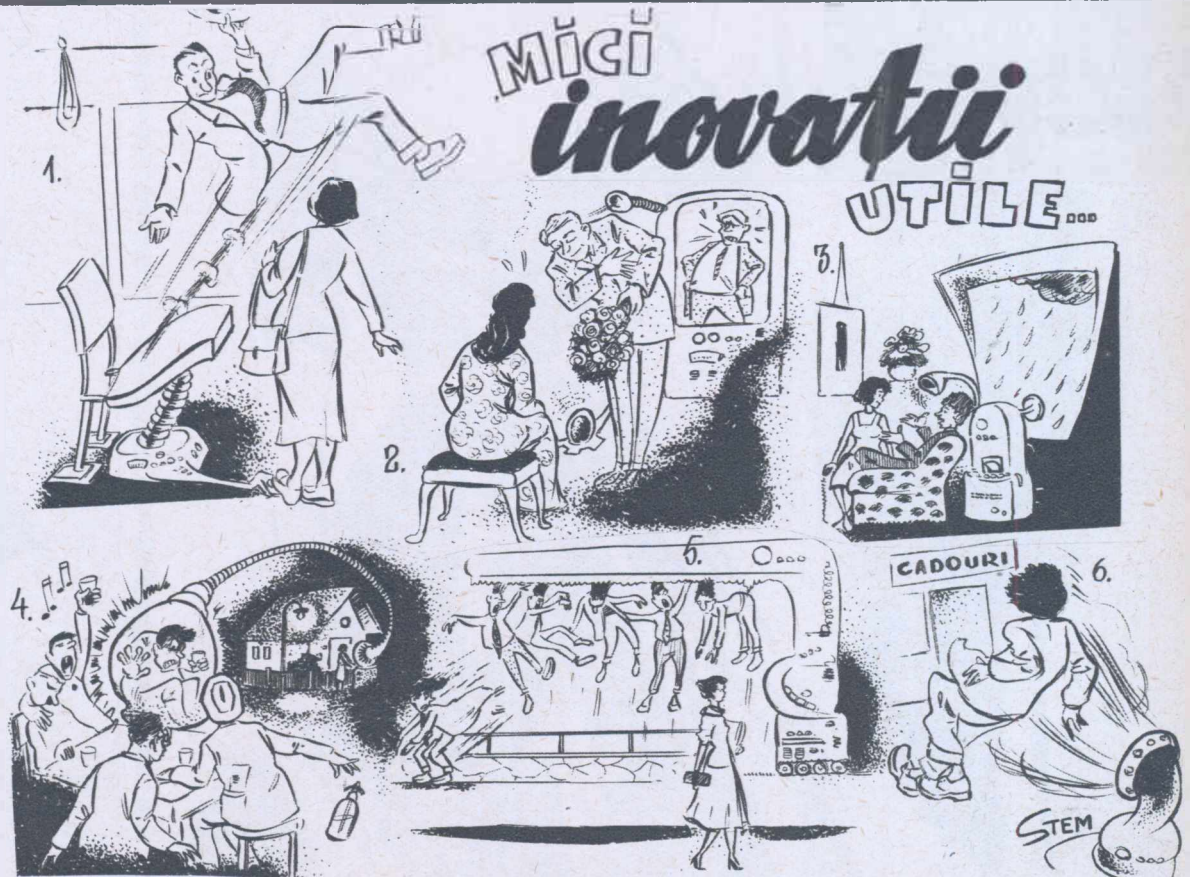 MICI
inovații
UTILE...
1.
2.
3.
4.
5.
CADOURI
6.
STEM